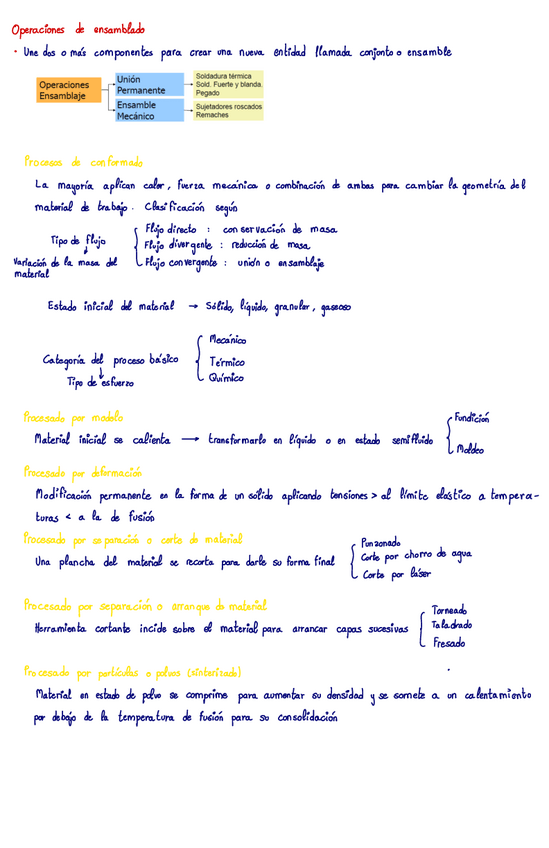 Operaciones de ensamblado
• Une dos o más componentes para crear una nueva entidad llamada conjonto o ensamble
Operaciones Ensamblaje
Unión Permanente
Soldadura térmica
Sold. Fuerte y blanda.
Pegado
Ensamble Mecánico
Sujetadores roscados
Remaches
Procesos de conformado
La mayoría aplican calor, fuerza mecánica o combinación de ambas para cambiar la geometría del
material de trabajo. Clasificación según
Tipo de flujo
Variación de la masa del
material
Flujo directo : conservación de masa
Flujo divergente : reducción de masa
Flujo convergente : unión o ensamblaje
Estado inicial del material → Sólido, líquido, granular, gaseoso
Categoría del proceso básico
Tipo de esfuerzo
Mecánico
Térmico
Químico
Procesado por modelo
Material inicial se calienta → transformarlo en líquido o en estado semifluido
Fundición
Moldeo
Procesado por deformación
Modificación permanente en la forma de un sólido aplicando tensiones > al límite elástico a tempera-
turas < a la de fusión
Procesado por separación o corte de material
Una plancha del material se recorta para darle su forma final
Punzonado
Corte por chorro de agua
Corte por láser
Procesado por separación o arranque de material
Herramienta cortante incide sobre el material para arrancar capas sucesivas
Torneado
Taladrado
Fresado
Procesado por partículas o polvos (sinterizado)
Material en estado de polvo se comprime para aumentar su densidad y se somete a un calentamiento
por debajo de la temperatura de fusión para su consolidación